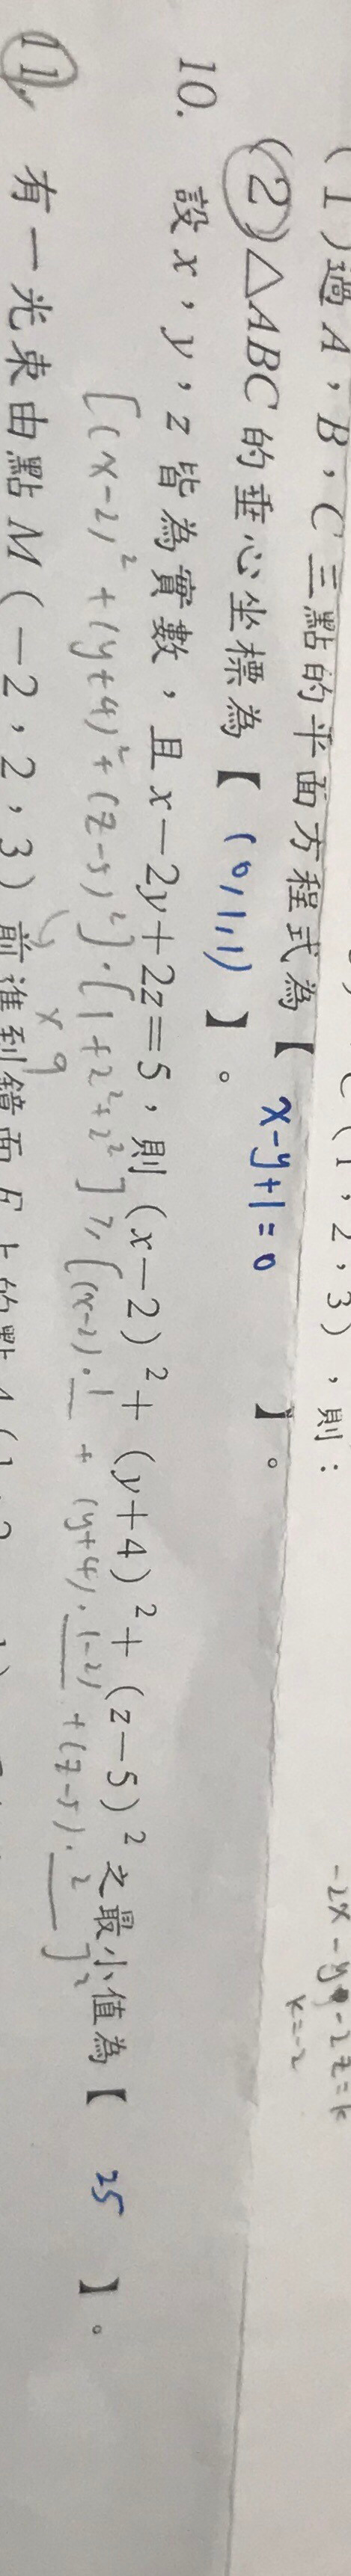 (1)過A,B,C三點的平面方程式為【 x-y+1=0 】。
(2)△ABC的垂心坐標為【 (0,1,1) 】。
-2x-y-2z=k
k=-2
10. 設x,y,z皆為實數,且x-2y+2z=5,則(x-2)²+(y+4)²+(z-5)²之最小值為【 25 】。
[(x-2)²+(y+4)²+(z-5)²]·[1+2²+2²]≥[(x-2)·1+(y+4)·(-2)+(z-5)·2]²
11. 有一光束由點M(-2,2,3)前進到鏡面